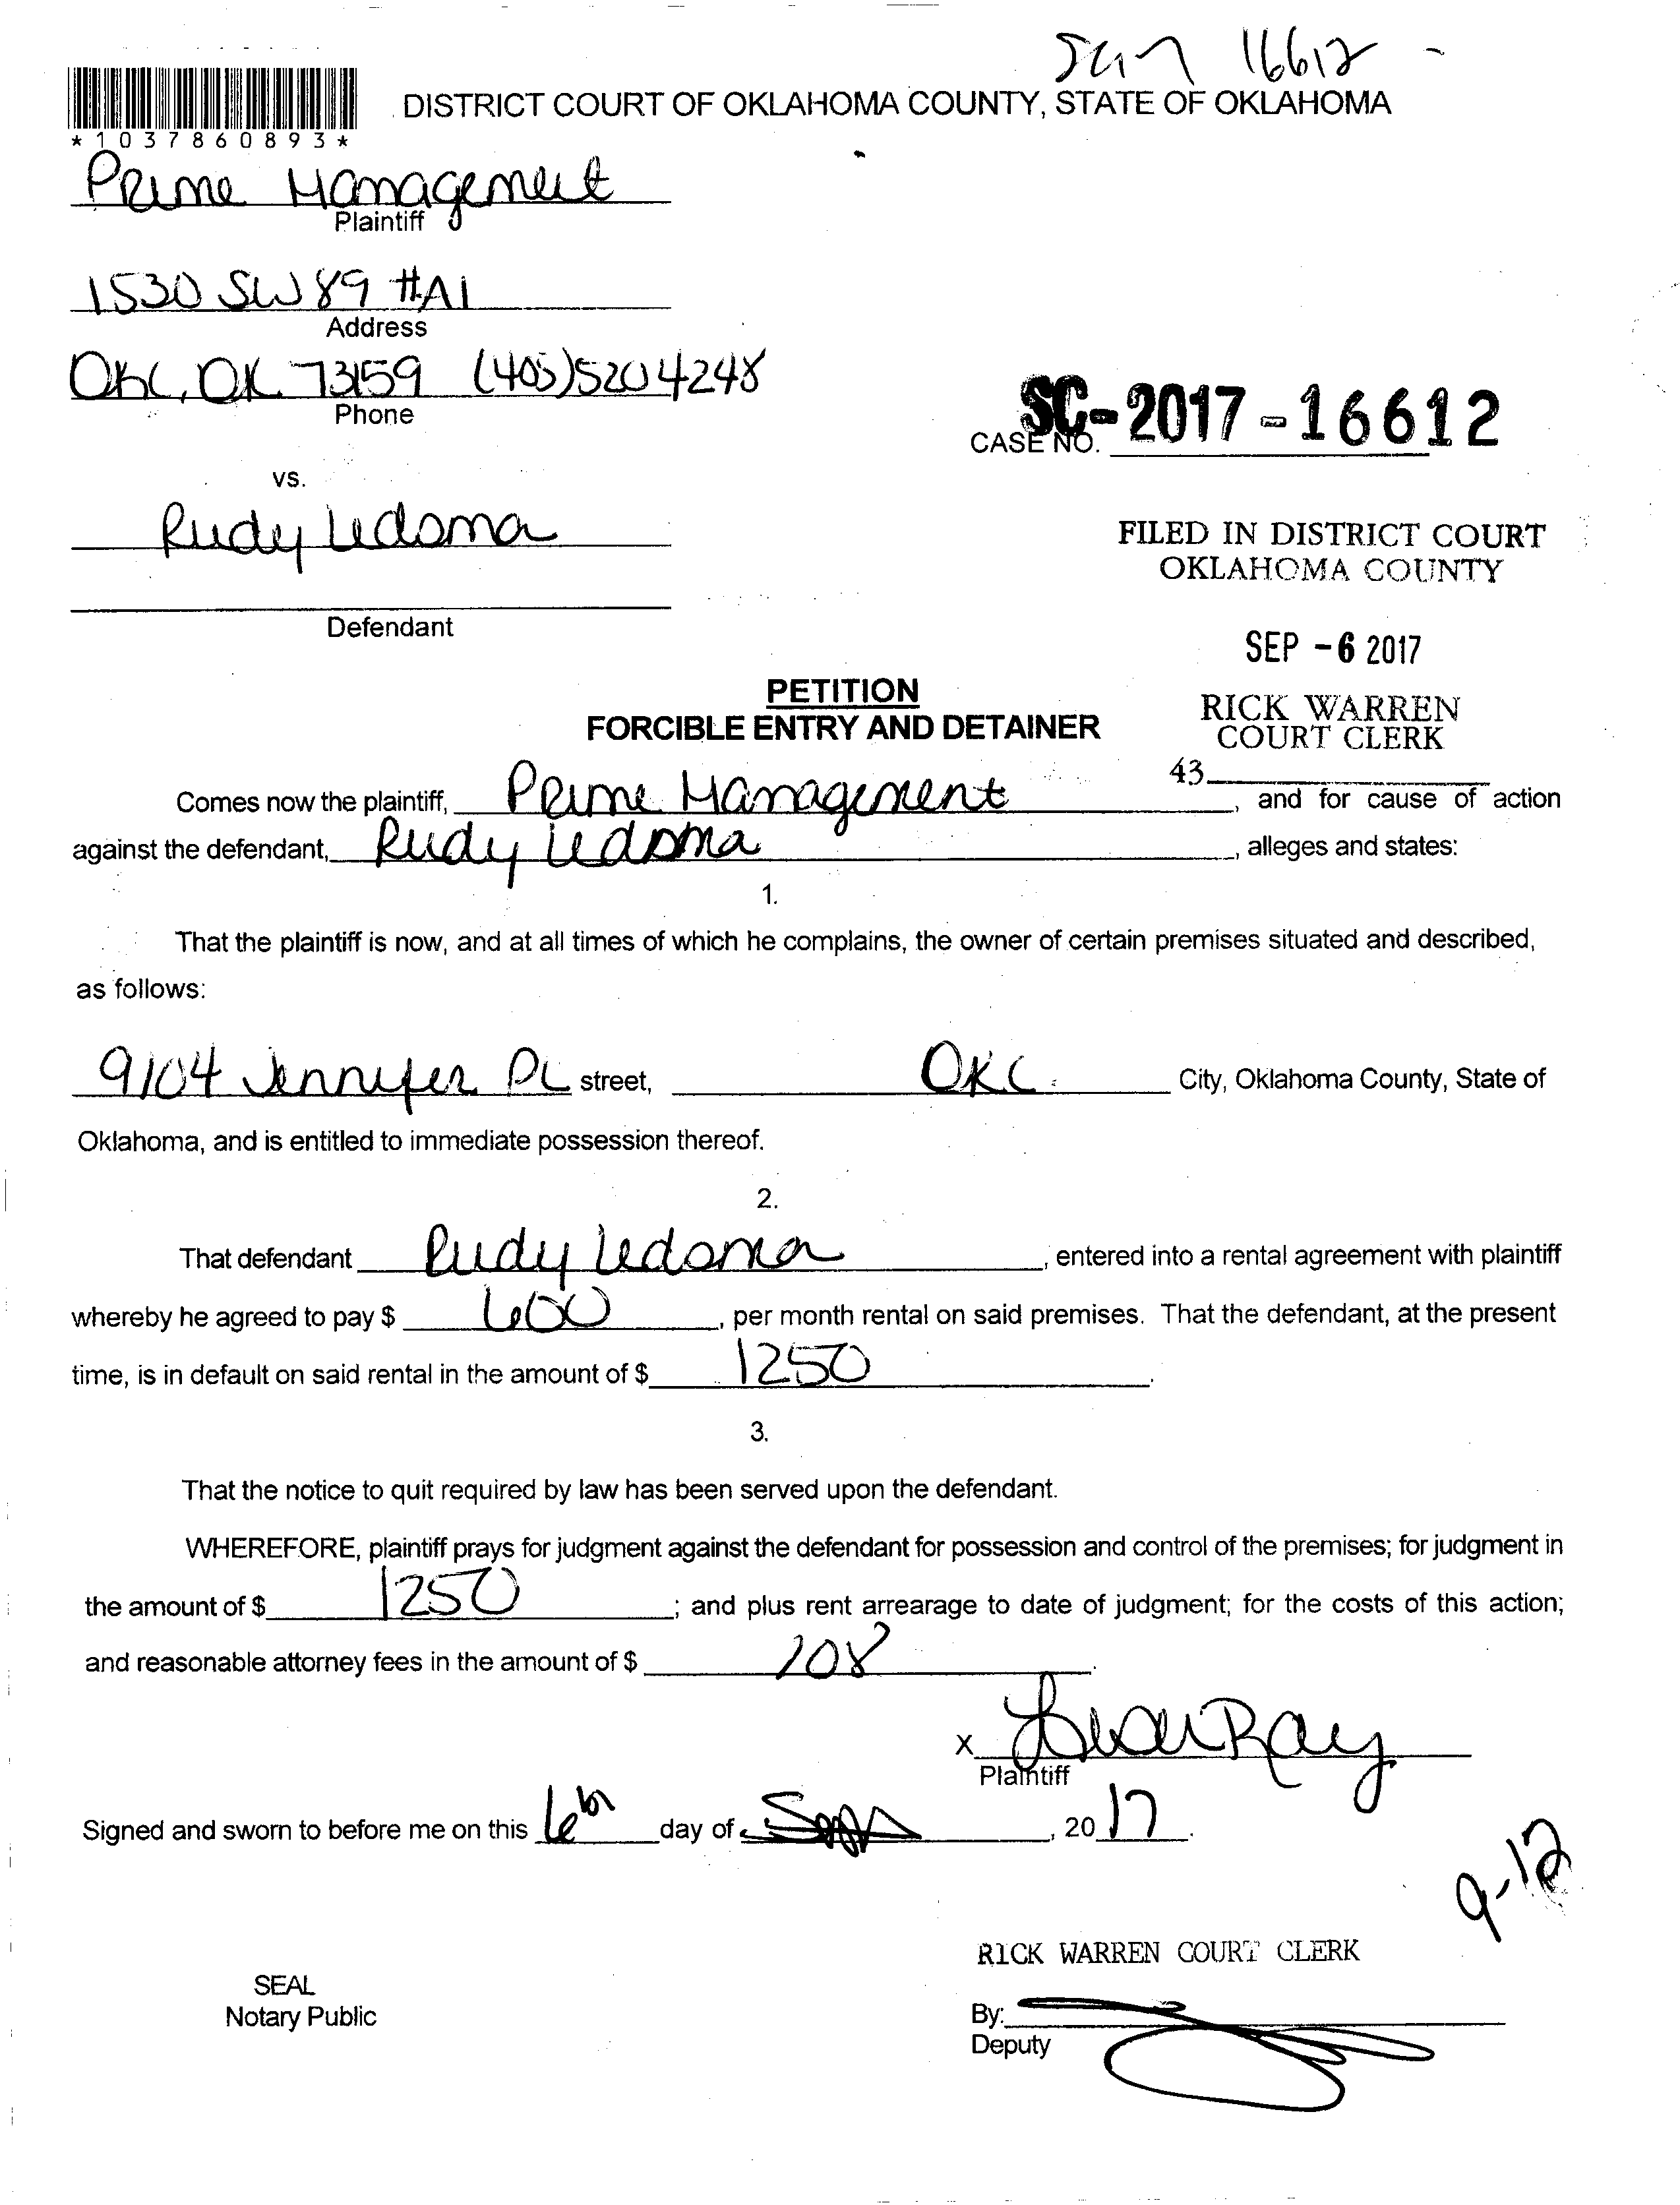 16612
DISTRICT COURT OF OKLAHOMA COUNTY, STATE OF OKLAHOMA
*1037860893*
Prime Management
Plaintiff
1530 SW 89 #A1
Address
OKC, OK 73159 (405)5204248
Phone
SC-2017-16612
CASE NO.
vs.
Rudy Ledsma
FILED IN DISTRICT COURT
OKLAHOMA COUNTY
Defendant
SEP -6 2017
PETITION
FORCIBLE ENTRY AND DETAINER
RICK WARREN
COURT CLERK
43
Comes now the plaintiff, Prime Management, and for cause of action
against the defendant, Rudy Ledsma, alleges and states:
1.
That the plaintiff is now, and at all times of which he complains, the owner of certain premises situated and described,
as follows:
9104 Jennifer PL street, OKC City, Oklahoma County, State of
Oklahoma, and is entitled to immediate possession thereof.
2.
That defendant Rudy Ledsma, entered into a rental agreement with plaintiff
whereby he agreed to pay $ 600, per month rental on said premises. That the defendant, at the present
time, is in default on said rental in the amount of $ 1250.
3.
That the notice to quit required by law has been served upon the defendant.
WHEREFORE, plaintiff prays for judgment against the defendant for possession and control of the premises; for judgment in
the amount of $ 1250; and plus rent arrearage to date of judgment; for the costs of this action;
and reasonable attorney fees in the amount of $ 208.
X Ray
Plaintiff
Signed and sworn to before me on this 6th day of Sept, 2017.
9-12
RICK WARREN COURT CLERK
SEAL
Notary Public
By:
Deputy